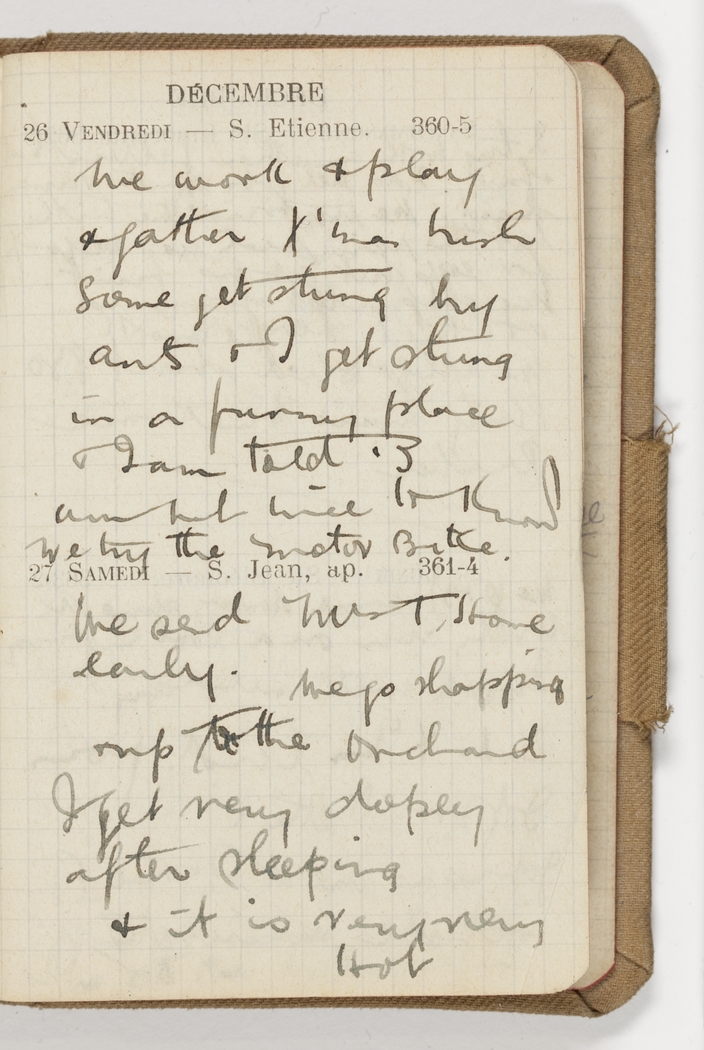 DÉCEMBRE
26 VENDREDI — S. Etienne. 360-5
We work & play
& gather X'mas bush
Some get stung by
ants & I get stung
in a funny place
& I am told · 3
am but nice to Know
We try the motor Bike.
27 SAMEDI — S. Jean, ap. 361-4
We send Home
early. We go shopping
& up to the Orchard
I get very dopey
after sleeping
& it is very very
Hot